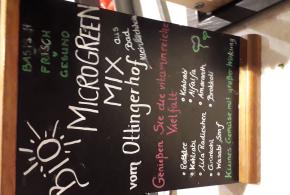 BASISCH
FRISCH
GESUND
BIO
MICROGREEN
MIX
aus
Bad
vom Ottingerhof
Genießen Sie die vitaminreiche
Vielfalt
Kohlrabi
Alfalfa
Amaranth
Brokkoli
Lila Radieschen
Wasabi Senf
Kleines Gemüse mit großer Wirkung